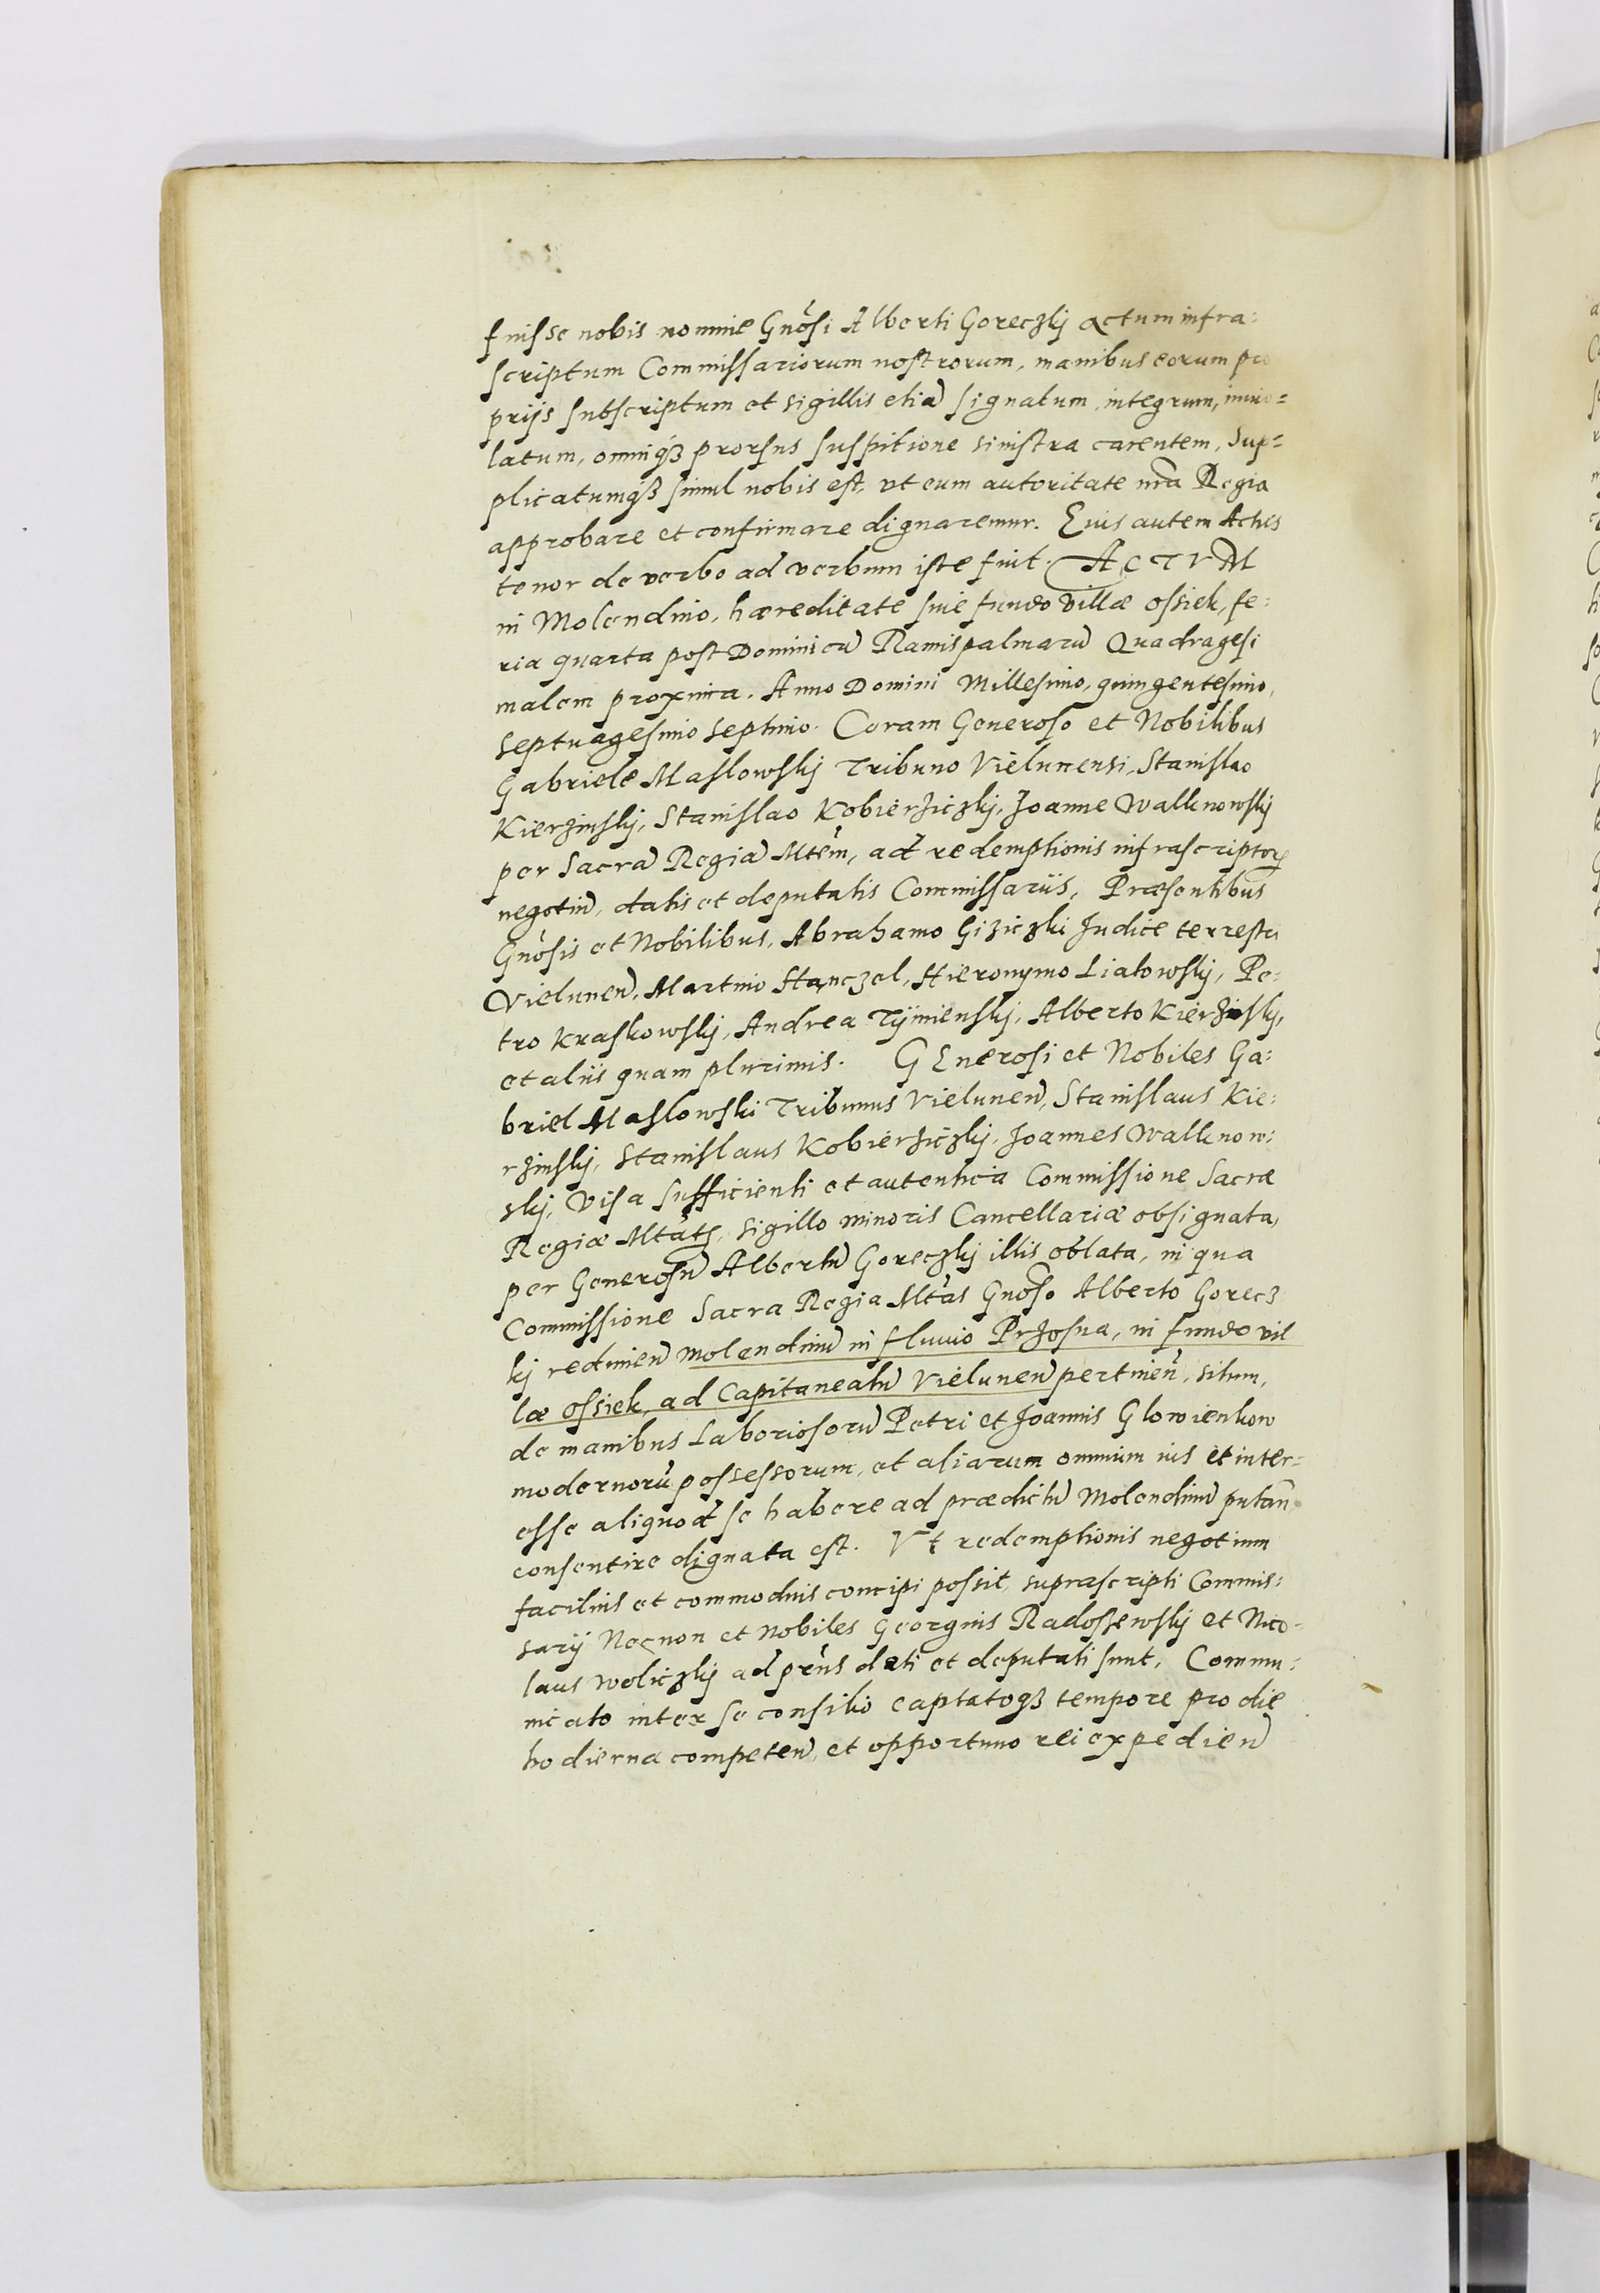 fuisse nobis nomine Gnosi Alberti Goreczkij actum infra:
scriptum Commissariorum nostrorum, manibus eorum pro
prijs subscriptum et sigillis etiā signatum, integrum, invio=
latum, omniq₃ prorsus suspitione sinistra carentem, Sup=
plicatumq₃ simul nobis est, ut eum autoritate nrā Regia
approbare et confirmare dignaremur. Eius autem Actus
tenor de verbo ad verbum iste fuit. ACTVM
in Molendino, hæreditate sive fundo villæ Ossiek, fe:
ria quarta post Dominicā Ramispalmarū Quadragesi
malem proxima. Anno Domini Millesimo, quingentesimo,
septuagesimo septimo. Coram Generoso et Nobilibus
Gabriele Maslowskij Tribuno Vielunensi, Stanislao
Kierzinskij, Stanislao Kobierzičzkij, Joanne Walknowskij
per Sacrā Regiā Mtēm, ad redemptionis infrascriptorꝫ
negotiū, datis et deputatis Commissariis, Præsentibus
Gnosis et Nobilibus, Abrahamo Giziczki Judice terrestri
Vielunen̄, Martino Stanczel, Hieronymo Liatowskij, Pe:
tro Kraskowskij, Andrea Tymienskij, Alberto Kierzinskij,
et aliis quam plurimis. GEnerosi et Nobiles Ga:
briel Maslowski Tribunus Vielunen̄, Stanislaus Kie:
rzinskij, Stanislaus Kobierziczkij, Joannes Walknow:
skij, Visa sufficienti et autentica Commissione Sacræ
Regiæ Mtātis, sigillo minoris Cancellariæ obsignata,
per Generosū Albertū Goreczkij illis oblata, in qua
Commissione Sacra Regia Mtās Gnōso Alberto Gorecz
kij redimen̄ molendinū in fluvio Przosna, in fundo vil
læ Ossiek, ad Capitaneatū Vielunen̄ pertinen̄, situm,
de manibus Laboriosorū Petri et Joannis Glowienkow
modernorū possessorum, et aliarum omnium ius et inter=
esse aliquod se habere ad prædictū Molendinū putan̄
consentire dignata est. Ut redemptionis negotium
facilius et commodius concipi possit, suprascripti Commis:
sarij Necnon et Nobiles Georgius Radossewskij et Nico=
laus Woliczkij ad prēns dati et deputati sunt, Commu:
nicato inter se consilio captatoq₃ tempore pro die
hodierna competen̄, et opportuno rei expedien̄